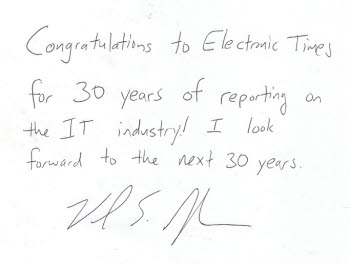 Congratulations to Electronic Times
for 30 years of reporting on
the IT industry! I look
forward to the next 30 years.